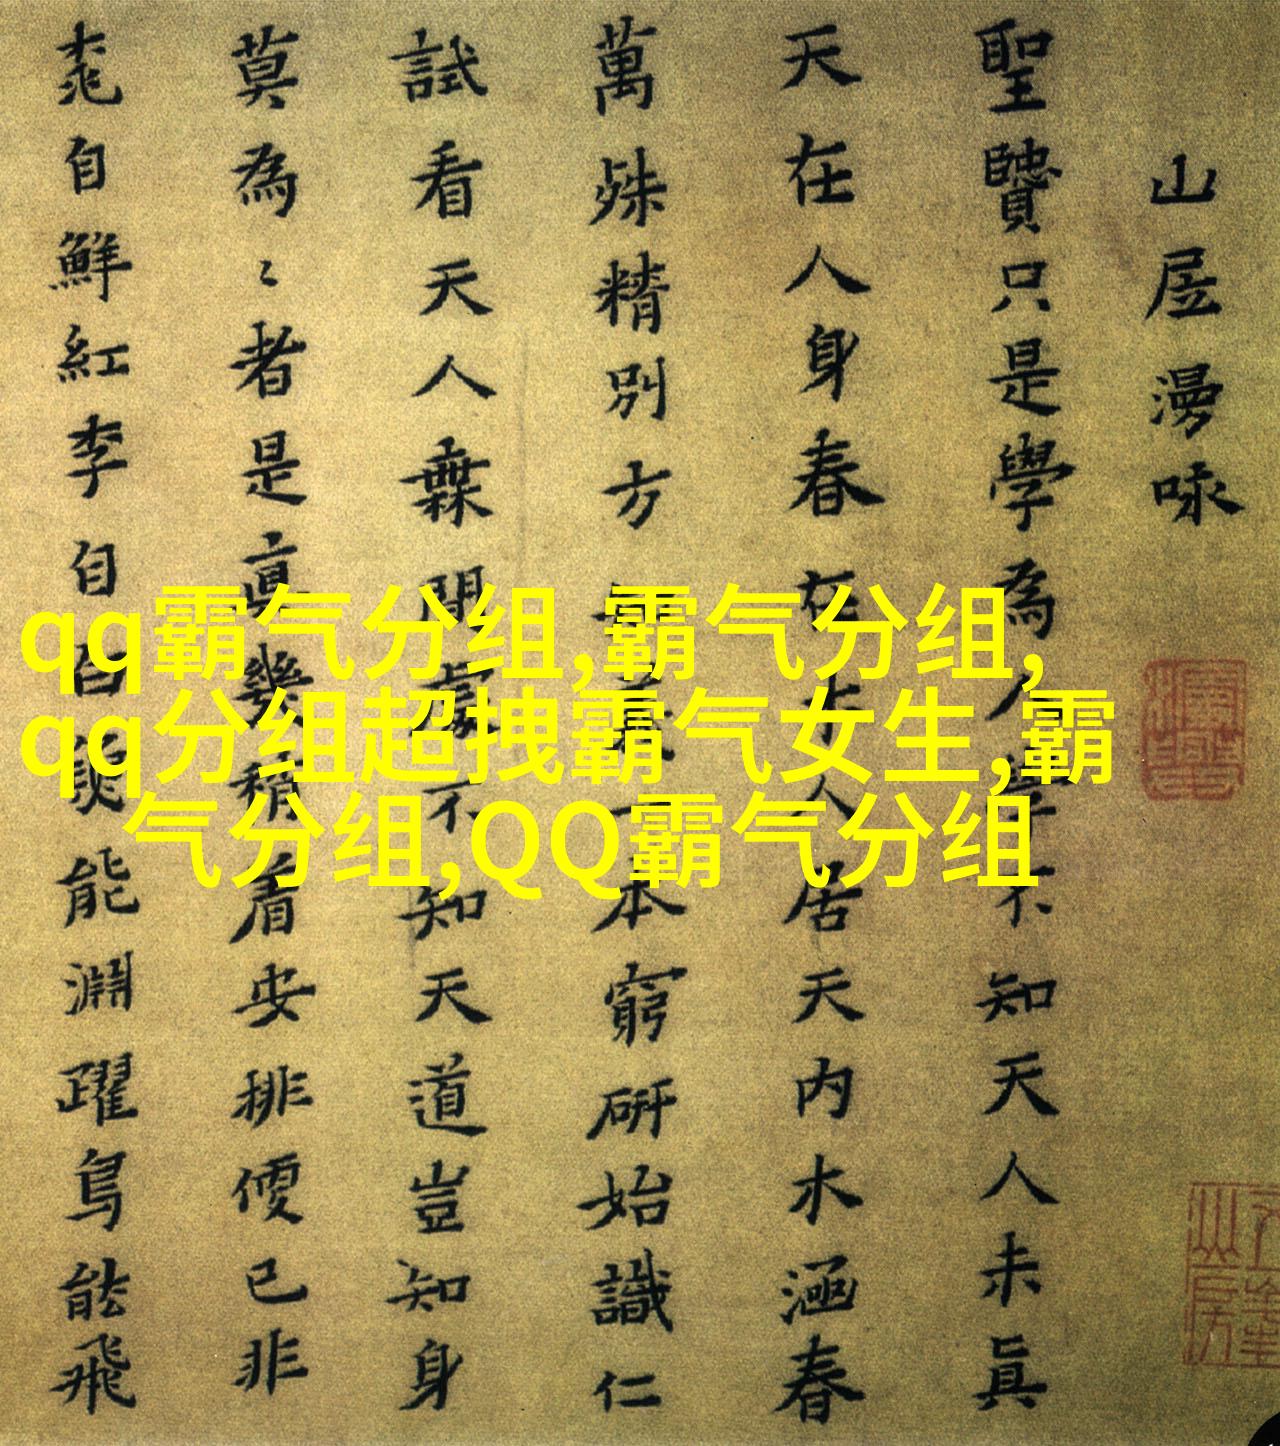 山居漫咏
聖賢只是學為人學不知天人未眞
天在人身春在木人居天内水涵春
萬殊精別方一本窮研始識仁
試看天人無間處不知天道豈知身
莫為〻者是眞幾稍着安排便已非
桃自鮮紅李自白能淵躍鳥能飛
qq霸气分组,霸气分组,
qq分组超拽霸气女生,霸
气分组,QQ霸气分组